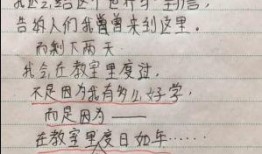 告诉人们我曾曾来到这里。
而剩下两天
我会在教室里度过,
不是因为我有多么好学,
而是因为——
在教室里度日如年……